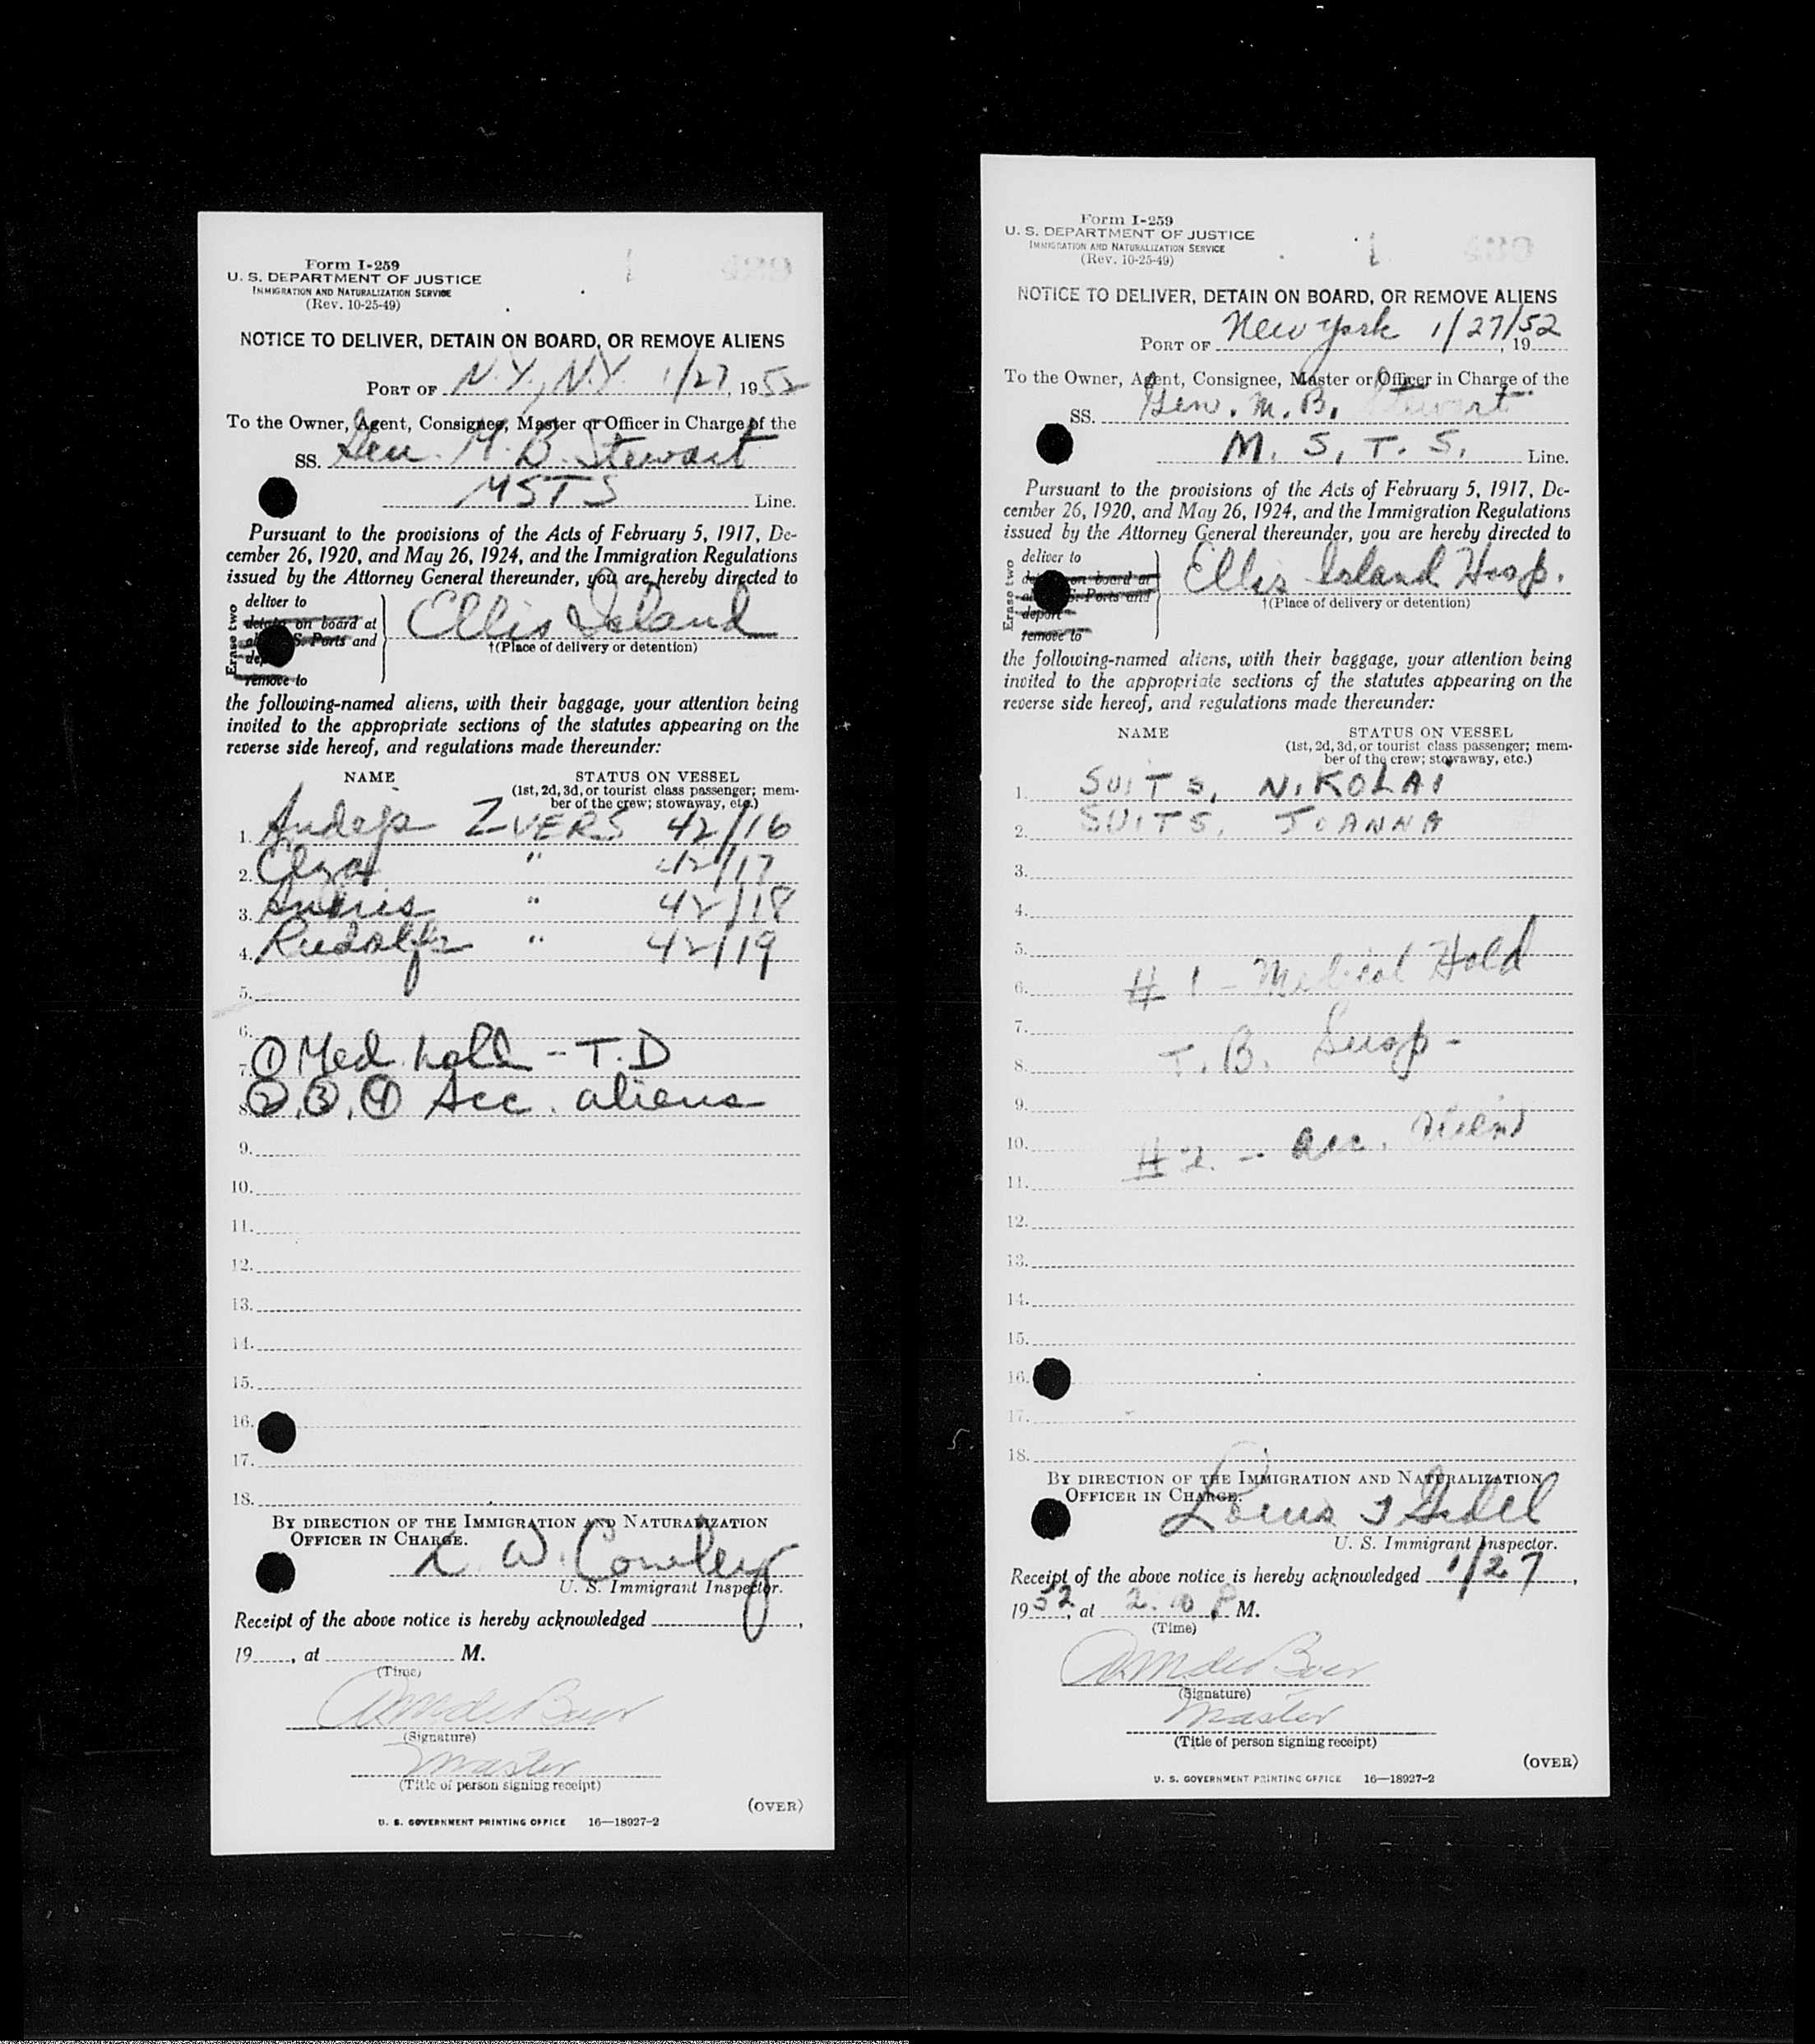 Form I-259
U. S. DEPARTMENT OF JUSTICE
IMMIGRATION AND NATURALIZATION SERVICE
(Rev. 10-25-49)
NOTICE TO DELIVER, DETAIN ON BOARD, OR REMOVE ALIENS
PORT OF N.Y., N.Y. 1/27, 1952
To the Owner, Agent, Consignee, Master or Officer in Charge of the
SS. Gen. M. B. Stewart
MSTS Line.
Pursuant to the provisions of the Acts of February 5, 1917, De-
cember 26, 1920, and May 26, 1924, and the Immigration Regulations
issued by the Attorney General thereunder, you are hereby directed to
Erase two
deliver to
detain on board at
S. Ports and
remove to
Ellis Island
†(Place of delivery or detention)
the following-named aliens, with their baggage, your attention being
invited to the appropriate sections of the statutes appearing on the
reverse side hereof, and regulations made thereunder:
NAME STATUS ON VESSEL
(1st, 2d, 3d, or tourist class passenger; mem-
ber of the crew; stowaway, etc.)
1. ZVERS 42/16
2. " 42/17
3. " 42/18
4. Rudolfs " 42/19
5.
6.
7. ① Med. hold - T.D
8. ②, ③, ④ Acc. aliens
9.
10.
11.
12.
13.
14.
15.
16.
17.
18.
BY DIRECTION OF THE IMMIGRATION AND NATURALIZATION
OFFICER IN CHARGE.
L. W. Cowley
U. S. Immigrant Inspector.
Receipt of the above notice is hereby acknowledged ,
19 , at M.
(Time)
(Signature)
Master
(Title of person signing receipt)
(OVER)
U. S. GOVERNMENT PRINTING OFFICE 16—18927-2
Form I-259
U. S. DEPARTMENT OF JUSTICE
IMMIGRATION AND NATURALIZATION SERVICE
(Rev. 10-25-49)
NOTICE TO DELIVER, DETAIN ON BOARD, OR REMOVE ALIENS
PORT OF New York 1/27/52, 19
To the Owner, Agent, Consignee, Master or Officer in Charge of the
SS. Gen. M. B. Stewart
M. S. T. S. Line.
Pursuant to the provisions of the Acts of February 5, 1917, De-
cember 26, 1920, and May 26, 1924, and the Immigration Regulations
issued by the Attorney General thereunder, you are hereby directed to
Erase two
deliver to
on board at
S. Ports and
deport
remove to
Ellis Island Hosp.
†(Place of delivery or detention)
the following-named aliens, with their baggage, your attention being
invited to the appropriate sections of the statutes appearing on the
reverse side hereof, and regulations made thereunder:
NAME STATUS ON VESSEL
(1st, 2d, 3d, or tourist class passenger; mem-
ber of the crew; stowaway, etc.)
1. SUITS, NIKOLAI
2. SUITS, JOANNA
3.
4.
5.
6. #1 - Medical Hold
7.
8. T. B. Susp-
9.
10. #2. - acc. alien
11.
12.
13.
14.
15.
16.
17.
18.
BY DIRECTION OF THE IMMIGRATION AND NATURALIZATION
OFFICER IN CHARGE.
Louis
U. S. Immigrant Inspector.
Receipt of the above notice is hereby acknowledged 1/27,
1952, at P M.
(Time)
(Signature)
Master
(Title of person signing receipt)
(OVER)
U. S. GOVERNMENT PRINTING OFFICE 16—18927-2